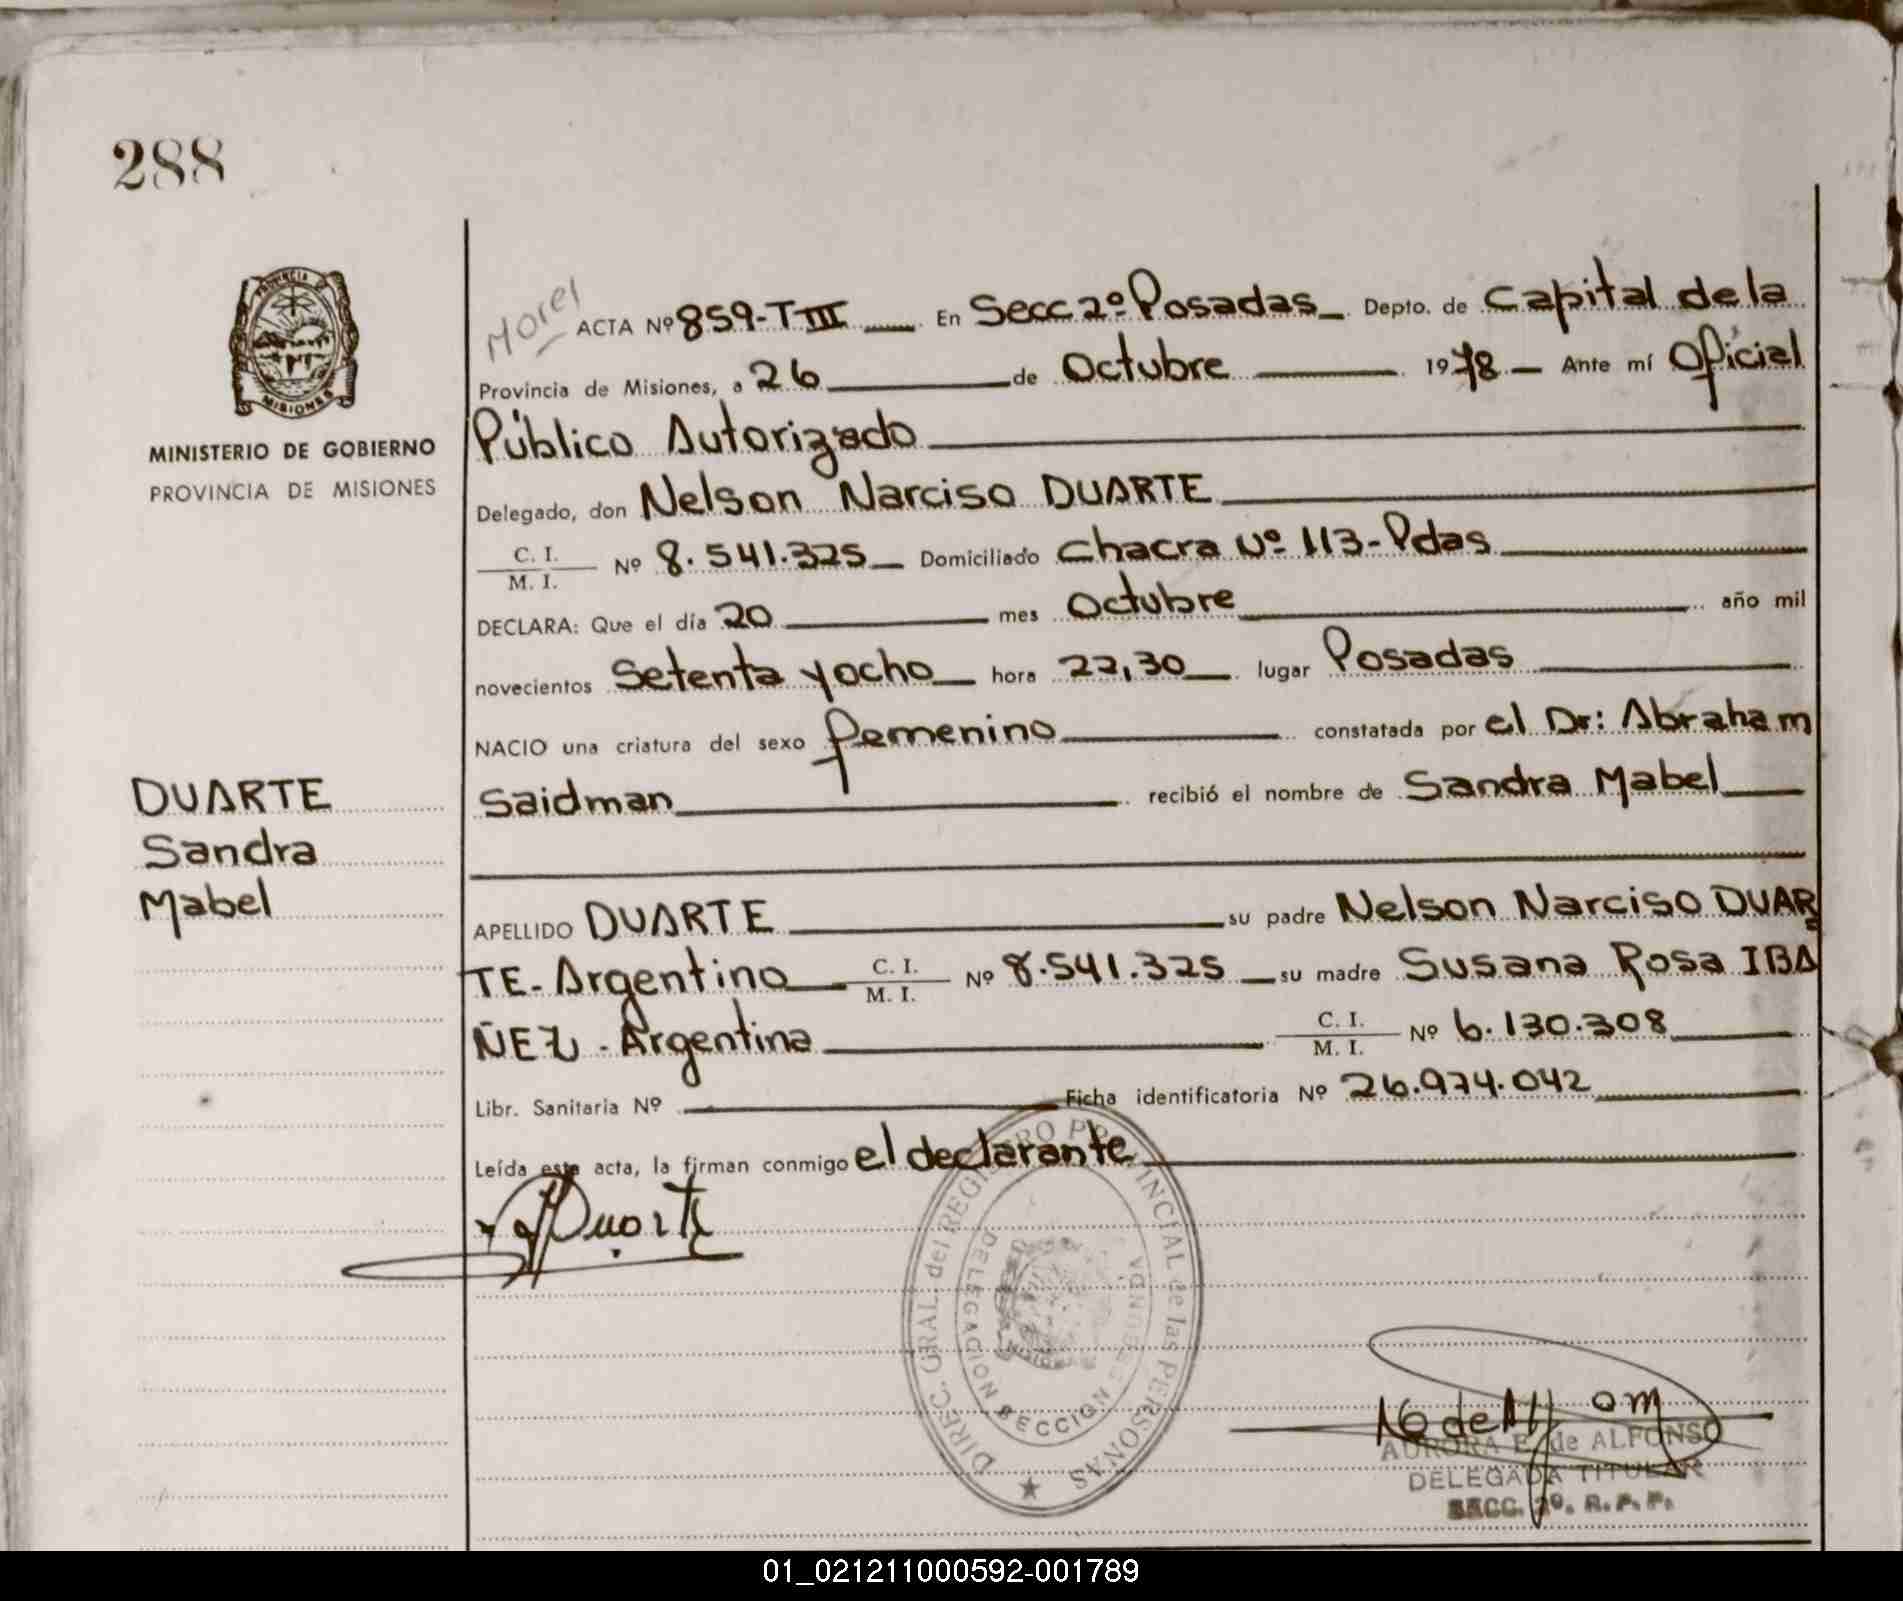 288
PROVINCIA DE
MISIONES
MINISTERIO DE GOBIERNO
PROVINCIA DE MISIONES
DUARTE
Sandra
Mabel
Morel
ACTA Nº 859-T III En Secc 2º Posadas Depto. de Capital de la
Provincia de Misiones, a 26 de Octubre 1978 Ante mí Oficial
Público Autorizado
Delegado, don Nelson Narciso DUARTE
C. I.
M. I. Nº 8.541.325 Domiciliado Chacra Nº 113-Pdas
DECLARA: Que el día 20 mes Octubre año mil
novecientos Setenta y ocho hora 22,30 lugar Posadas
NACIO una criatura del sexo femenino constatada por el Dr: Abraham
Saidman recibió el nombre de Sandra Mabel
APELLIDO DUARTE su padre Nelson Narciso DUAR
TE- Argentino C. I.
M. I. Nº 8.541.325 su madre Susana Rosa IBA
ÑEZ - Argentina C. I.
M. I. Nº 6.130.308
Libr. Sanitaria Nº Ficha identificatoria Nº 26.974.042
Leída esta acta, la firman conmigo el declarante
Duarte
DIREC. GRAL. del REGISTRO PROVINCIAL de las PERSONAS
DELEGACION SECCION SEGUNDA
AURORA E. de ALFONSO
DELEGADA TITULAR
SECC. 2º. R. P. P.
01_021211000592-001789